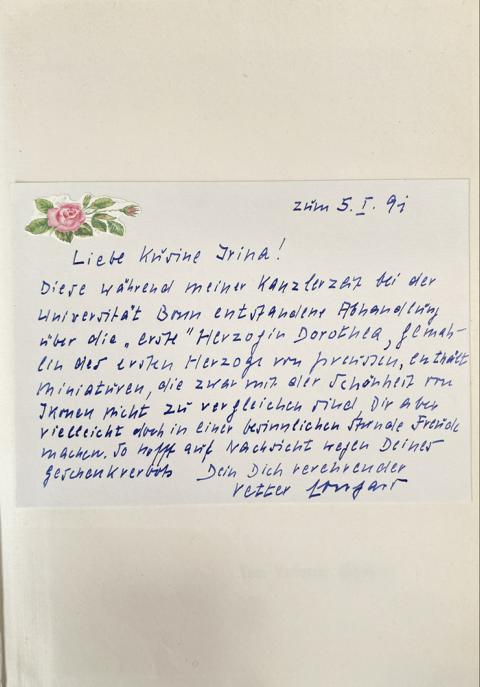 zum 5. I. 91
Liebe Kusine Irina!
Diese während meiner Kanzlerzeit bei der
Universität Bonn entstandene Abhandlung
über die „erste" Herzogin Dorothea, Gemah-
lin des ersten Herzogs von Preussen, enthält
Miniaturen, die zwar mit der Schönheit von
Ikonen nicht zu vergleichen sind, Dir aber
vielleicht doch in einer besinnlichen Stunde Freude
machen. So hoff auf Nachsicht wegen Deines
Geschenkverbots Dein Dich verehrender
Vetter